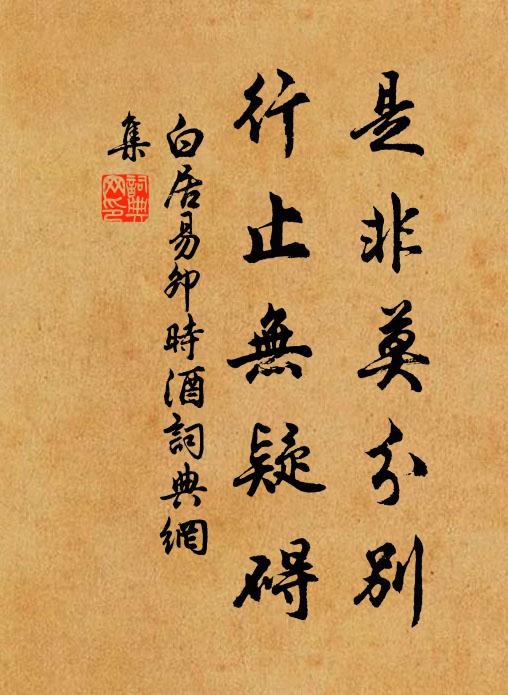 是非莫分别
行止無疑碍
白居易卯時酒詞典網
集
詞典
网印